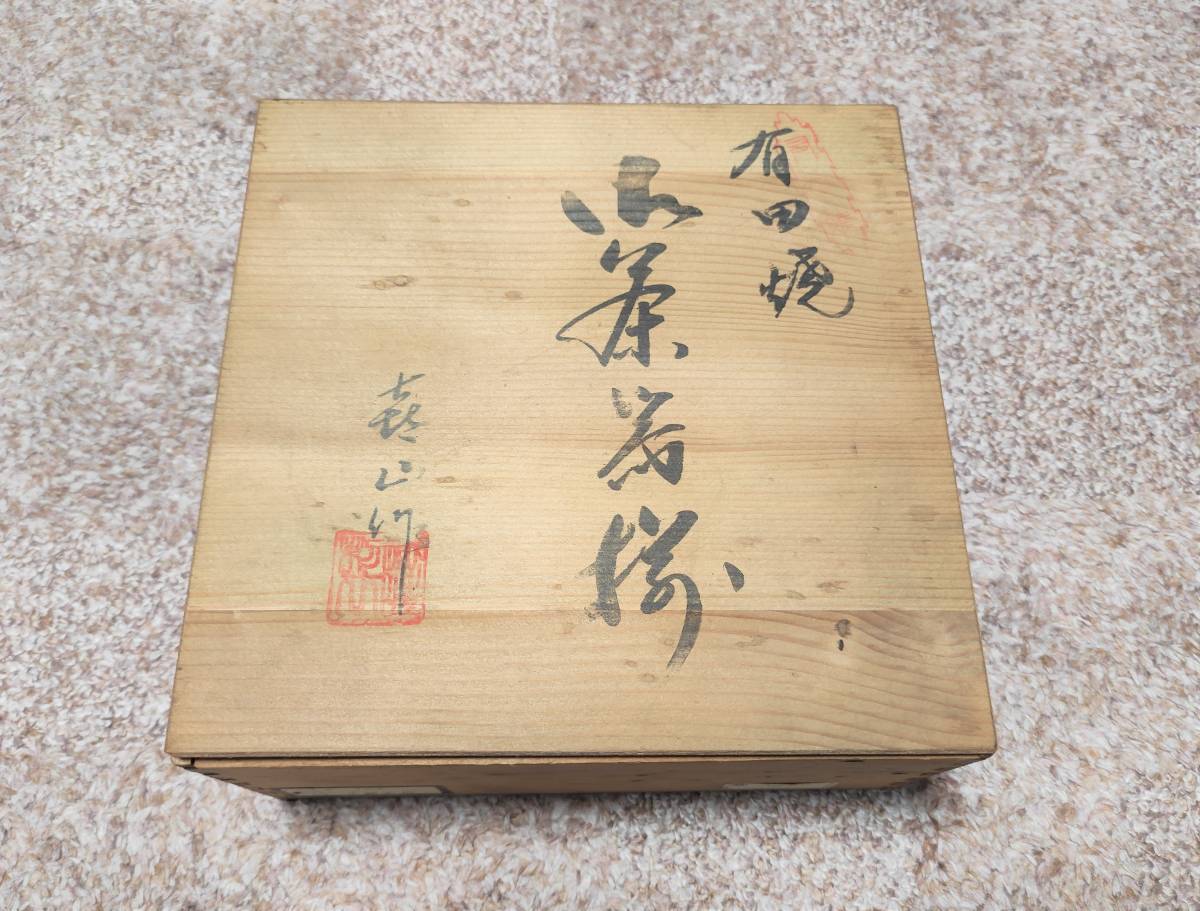 有田焼
御茶器揃
喜山作